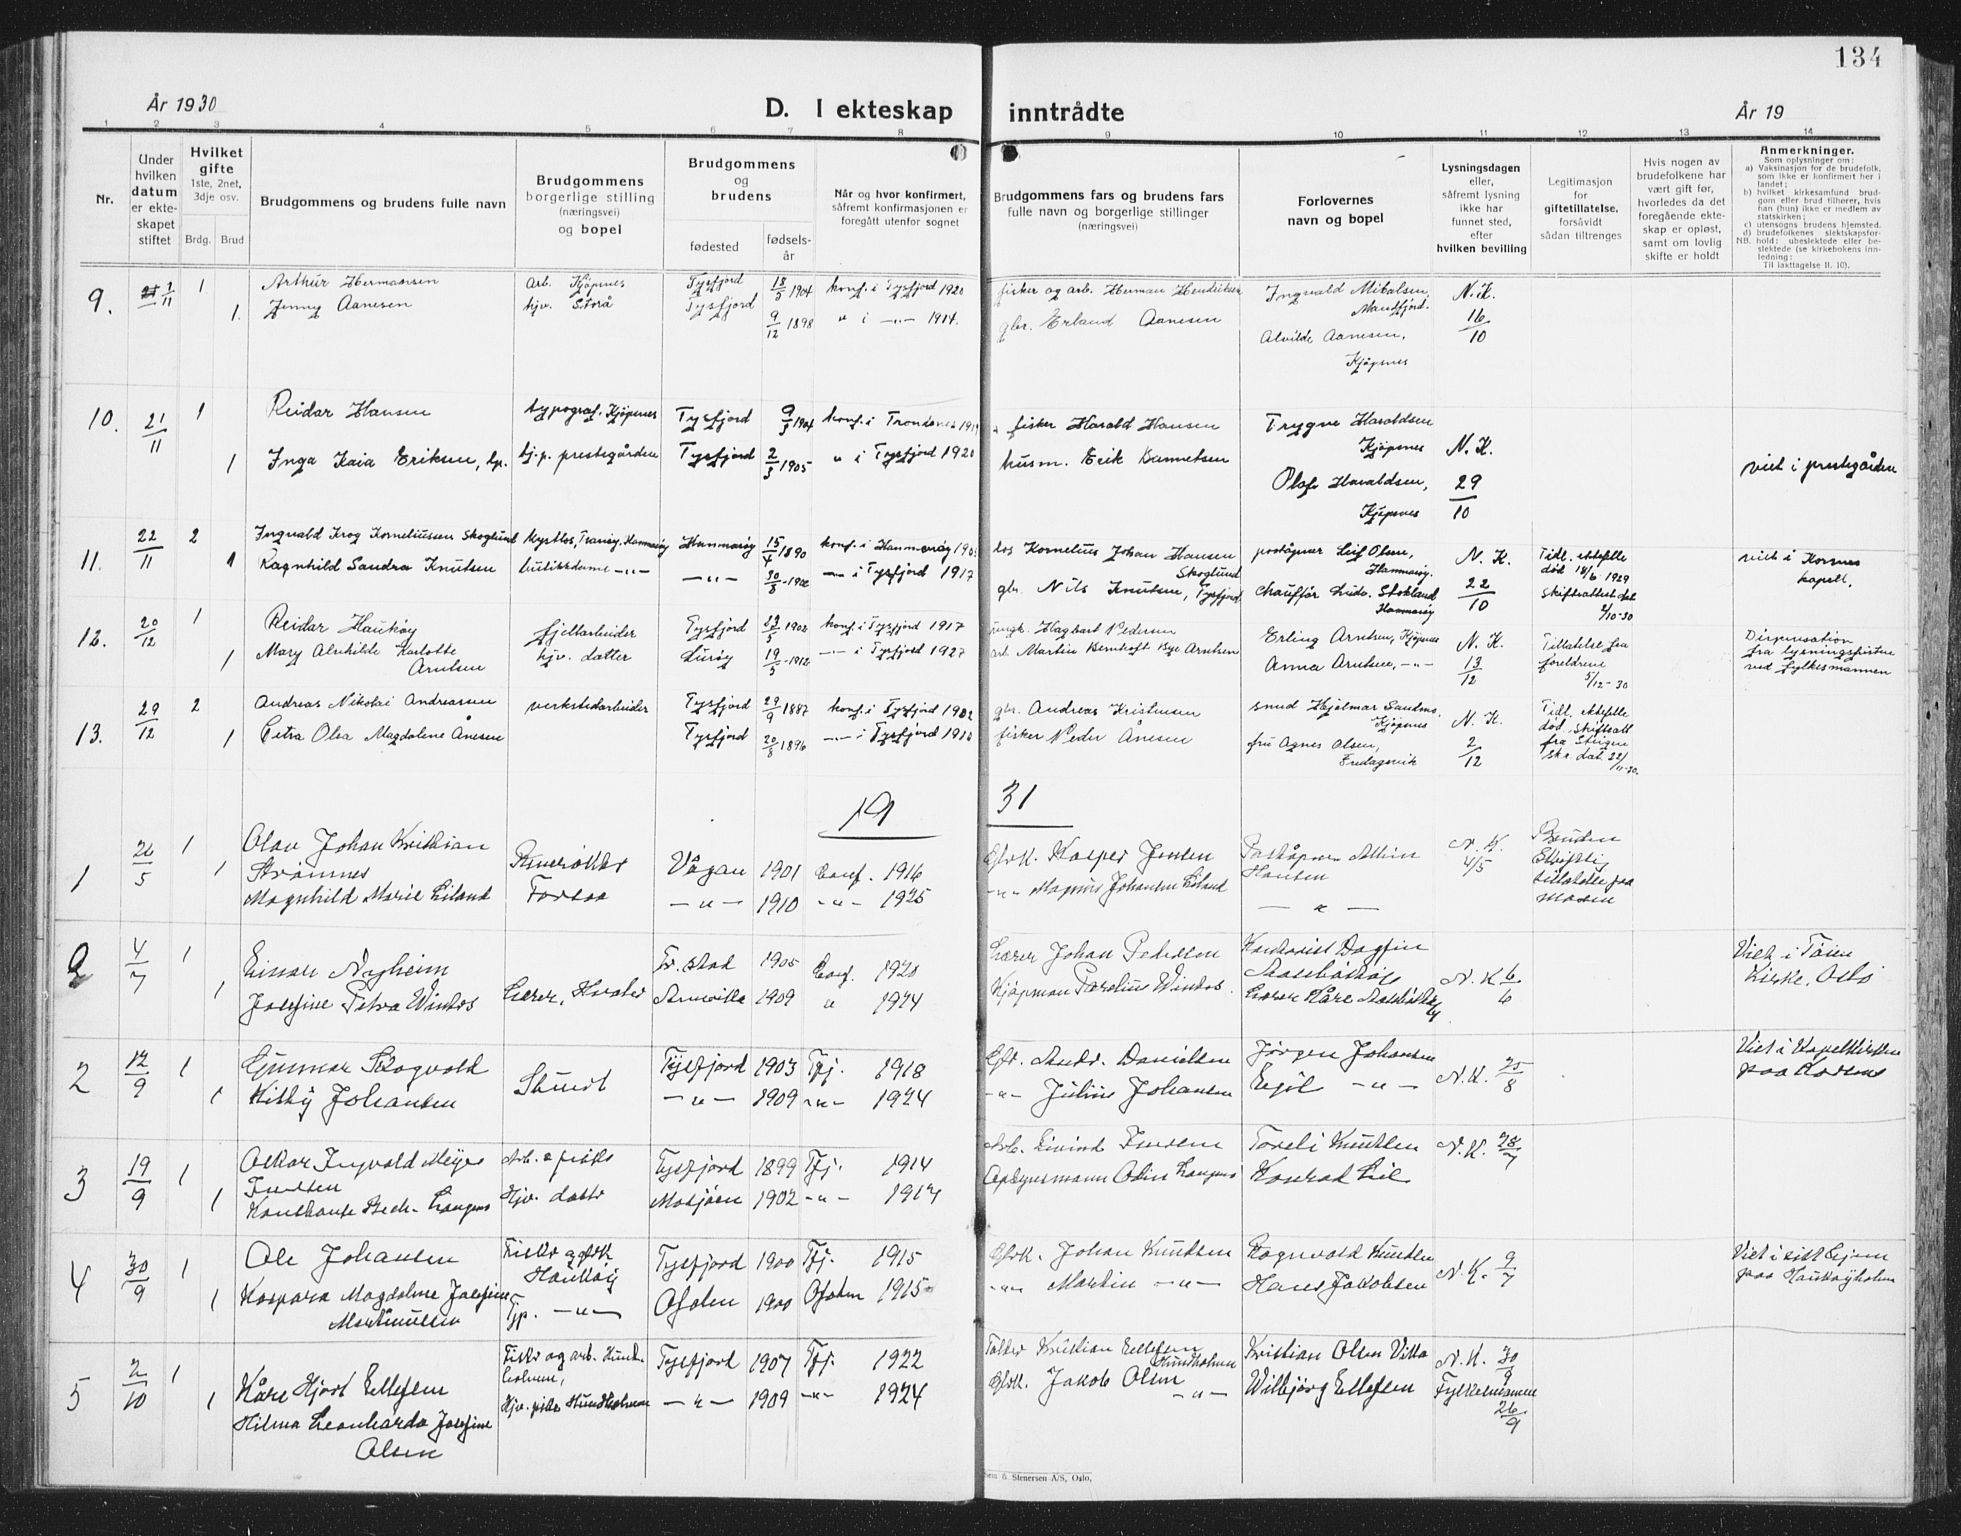 134
År 1930
D. I ekteskap inntrådte
År 19
1 2 3 4 5 6 7 8 9 10 11 12 13 14
Nr.
Under hvilken datum er ekteskapet stiftet
Hvilket gifte
1ste, 2net, 3dje osv.
Brdg. Brud
Brudgommens og brudens fulle navn
Brudgommens borgerlige stilling (næringsvei) og bopel
Brudgommens og brudens
fødested
fødselsår
Når og hvor konfirmert, såfremt konfirmasjonen er foregått utenfor sognet
Brudgommens fars og brudens fars fulle navn og borgerlige stillinger (næringsvei)
Forlovernes navn og bopel
Lysningsdagen eller, såfremt lysning ikke har funnet sted, efter hvilken bevilling
Legitimasjon for giftetillatelse, forsåvidt sådan tiltrenges
Hvis nogen av brudefolkene har vært gift før, hvorledes da det foregående ekteskap er opløst, samt om lovlig skifte er holdt
Anmerkninger.
Som oplysninger om:
a) Vaksinasjon for de brudefolk, som ikke er konfirmert her i landet;
b) hvilket kirkesamfund brudgom eller brud tilhører, hvis han (hun) ikke er medlem av statskirken;
c) utensogns brudens hjemsted.
d) brudefolkenes slektskapsforhold: ubeslektede eller beslektede (se kirkebokens innledning:
NB.
Til Iakttagelse II. 10).
9. 1/11 1 Arthur Hermansen arb. Kjøpsnes Tysfjord 18/5 1904 konf. i Tysfjord 1920 fisker og arb. Herman Hendriksen Ingvald Mikalsen, Mandfjord. N. K. 16/10
1. Jenny Aanesen hjv. Storå Tysfjord 9/12 1898 " i -"- 1914. gbr. Erland Aanesen Alvilde Aanesen, Kjøpsnes
10. 21/11 1 Reidar Hansen typograf, Kjøpsnes Tysfjord 9/3 1904 konf. i Trondenes fisker Harald Hansen Trygve Haraldsen Kjøpsnes N. K. 29/10
1 Inga Kaia Eriksen, tj.p. prestegården Tysfjord 2/3 1905 " i Tysfjord 1920 husm. Erik Olaf Haraldsen, Kjøpsnes viet i prestegården
11. 22/11 2 Ingvald Krog Korneliussen Skoglund Kystlos, Tranøy, Hammarøy Hammarøy 15/4 1890 konf. i Hammarøy los Kornelius Johan Hansen Skoglund poståpner Leif Olsen, Hammarøy. N. K. 22/10 Tidl. ektefelle død 18/6 1929 skifteattest dat. /10-30 viet i Korsnes kapell.
1 Ragnhild Sandra Knutsen butikkdame -"- -"- 30/8 -"- i Tysfjord 1917 gbr. Nils Knutsen, Tysfjord Chauffør Ludv. Stokland Hammarøy
12. 20/12 1 Reidar Haukøy fjellarbeider Tysfjord konf. i Tysfjord 1917 Hagbart Pedersen Erling Arntsen, Kjøpsnes N. K. 13/12 Tillatelse fra foreldrene 5/12-30 Dispensation fra lysningsfristen ved fylkesmannen
1 Mary Alvhilde Karlotte Arntsen hjv. datter Lurøy 19/5 1912 -"- i Tysfjord 1927 arb. Martin Bernhoft Bye Arntsen Anna Arntsen, -"-
13. 29/12 2 Andreas Nikolai Andreassen verkstedarbeider Tysfjord 29/9 1887 konf. i Tysfjord 1902 gbr. Andreas Kristensen smed Hjelmar Sandnes, Kjøpsnes N. K. 2/12 Tidl. ektefelle død. Skifteatt fra Steigen skr. dat. 22/11-30.
1 Petra Olea Magdalene Ånesen Tysfjord 20/8 1896 -"- i Tysfjord 1910 fisker Peder Ånesen fru Agnes Olsen,
19 31
1 26/5 1 Olav Johan Kristian Strømnes Vågan 1901 Conf. 1916 Gbrk. Kasper Jensen Hansen N. K. 4/5 Bruden Skriftlig tillatelse fra moren
1 Magnhild Marie Eiland Forsaa -"- 1910 -"- 1925 -"- Magnus Johansen Eiland -"-
2 4/7 1 Einar Nygheim Lærer, Hvaler Fr.stad 1905 Conf. 1920 Lærer Johan Pedersen Kontorist Dagfin N. K 6/6 Viet i Tøien Kirke, Oslo
1 Josefine Petra Amerika 1909 " 1924 Kjøpman Parelius Lærer Kåre
2 12/9 1 Gunnar Skogvold Tysfjord 1903 Tfj. 1918 Gbr. Andr. Danielsen Jørgen Johansen N. K. 25/8 Viet i Kapelkirken paa Korsnes
1 Kitty Johansen -"- 1909 -"- 1924 -"- Julius Johansen -"-
3 19/9 1 Oskar Ingvald Meyer Arb. & fisker Tysfjord 1899 Tfj. 1914 Arb. Eivind Toralf Knutsen N. K. 28/7
1 Konstanse Bech- Hjv. datter Mosjøen 1902 -"- 1917 Opsynsmann Odin Konrad Lie
4 30/9 1 Ole Johansen Fisker & gbrk Haukøy Tysfjord 1900 Tfj. 1915 Gbrk. Johan Knudsen Ragnvald Knudsen N. K. 9/7 Viet i sitt hjem paa Haukøyholmen
1 Kaspara Magdalene Josefine Martinussen Tjp. -"- Ofoten 1900 Ofoten 1915 -"- Martin -"- Hans Jakobsen
5 2/10 1 Kåre Hjort Ellefsen Fisker og arb. Hundholmen, Tysfjord 1907 Tfj. 1922 Tolder Kristian Ellefsen Hundholmen Kristian Olsen N. K. 30/9
1 Hilma Leonharda Josefine Olsen Hjv. pike Hundholmen -"- 1909 -"- 1924 Gbrk. Jakob Olsen -"- Wilbjørg Ellefsen Fylkesmannen 26/9
Sem & Stenersen A/S, Oslo,